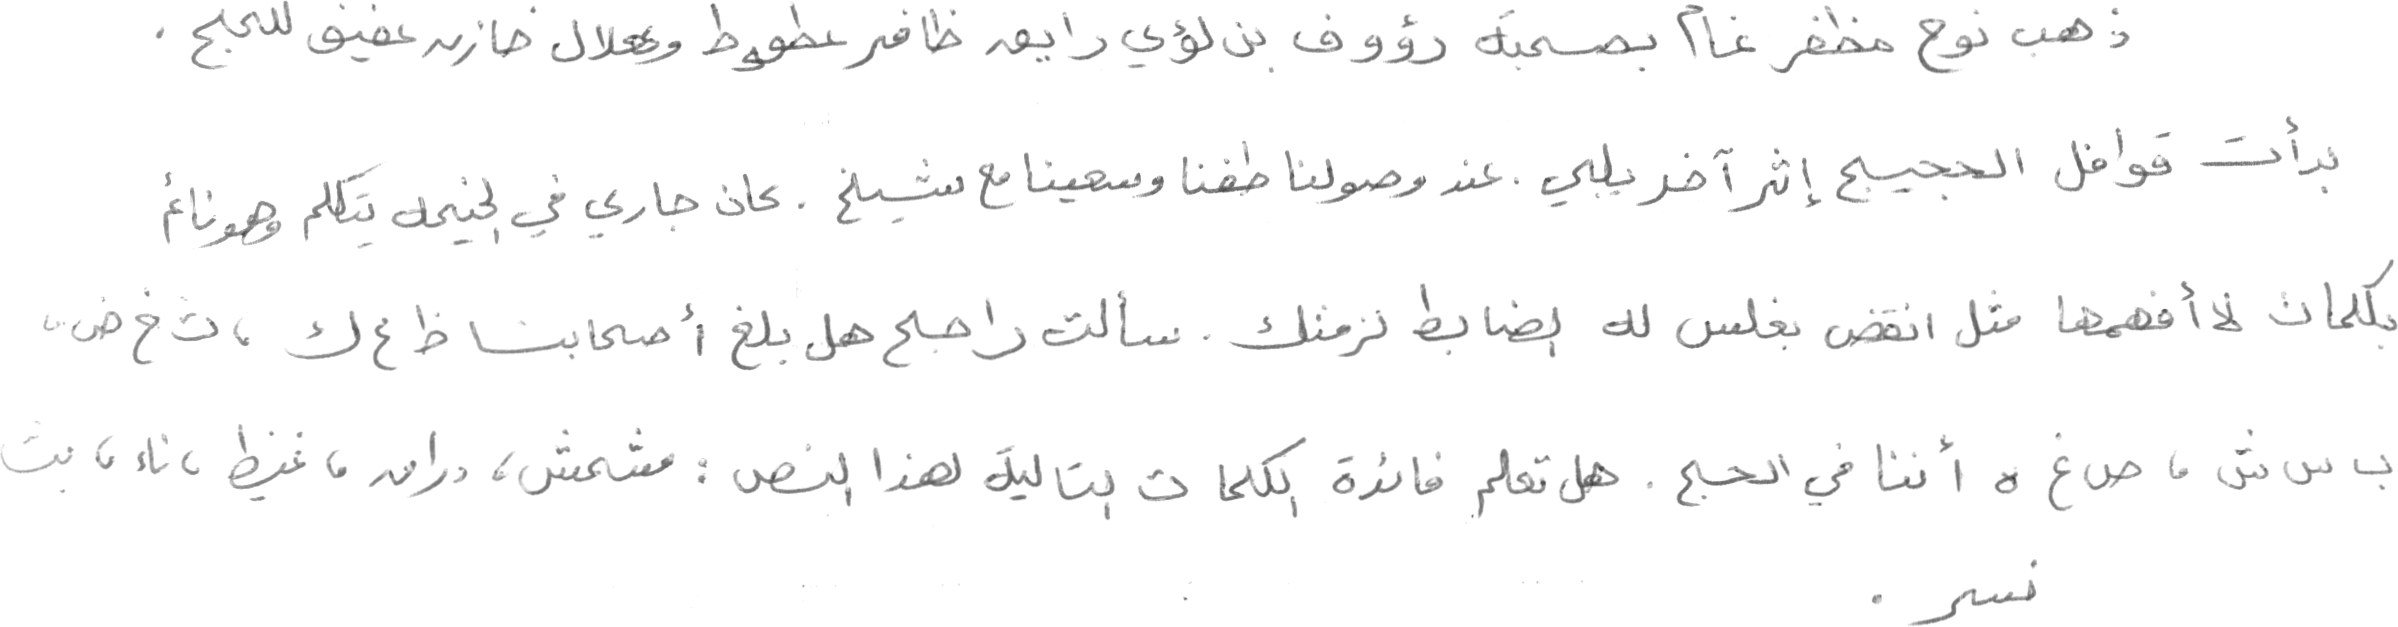 ذهب نوح مظفر غانم بصحبة رؤوف بن لؤي رايق ظافر عطوط وهلال خازن عفيف للحج .
بدأت قوافل الحجيج إثر آخر يلبي . عند وصولنا طفنا وسعينا مع شيخ . كان جاري في الخيمة يتكلم وهو نائم
بكلمات لا أفهمها مثل انقض بغلس لله الضابط نزمنك . سألت راجح هل بلغ أصحابنا ظ ع ك ، ث خ ض ،
ب س ش ، ص غ ه أننا في الحج . هل تعلم فائدة الكلمات التالية لهذا النص : مشمش ، دراق ، غيظ ، ناء ، بت
نسر .